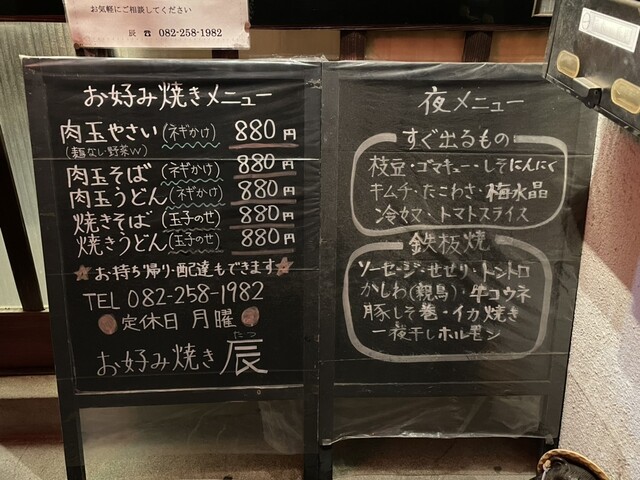 お気軽にご相談してください
辰 ☎ 082-258-1982
お好み焼きメニュー
肉玉やさい(ネギかけ) 880円
(麺なし・野菜W)
肉玉そば(ネギかけ) 880円
肉玉うどん(ネギかけ) 880円
焼きそば(玉子のせ) 880円
焼きうどん(玉子のせ) 880円
★お持ち帰り・配達もできます★
TEL 082-258-1982
定休日 月曜
たつ
お好み焼き 辰
夜メニュー
すぐ出るもの
枝豆・ゴマキュー・しそにんにく
キムチ・たこわさ・梅水晶
冷奴・トマトスライス
鉄板焼
ソーセージ・せせり・トントロ
かしわ(親鳥)・牛コウネ
豚しそ巻・イカ焼き
一夜干しホルモン